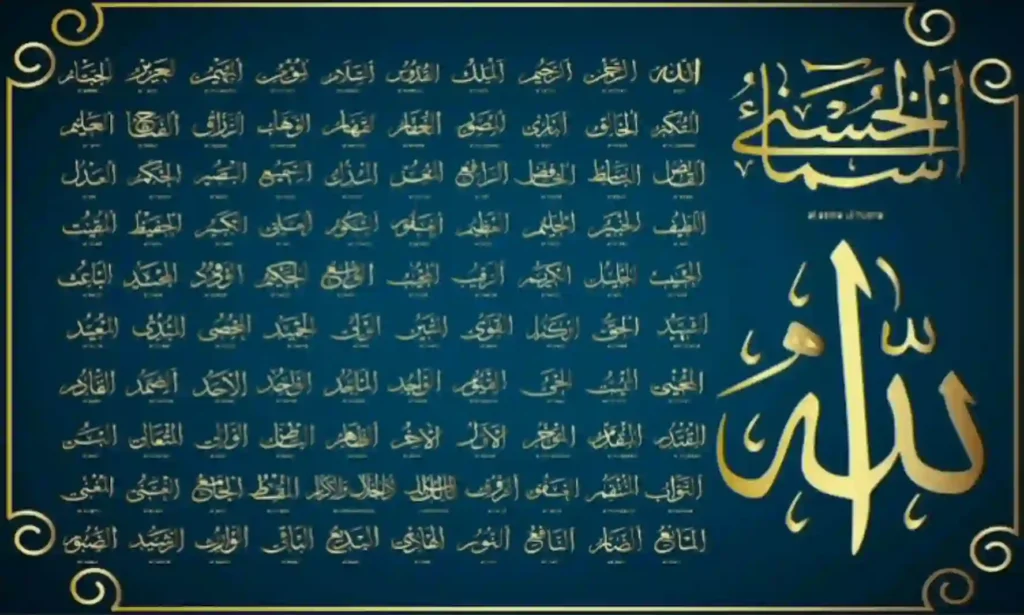 الأسماء الحسنى
al asma ul husna
الله
الله الرحمن الرحيم الملك القدوس السلام المؤمن المهيمن العزيز الجبار
المتكبر الخالق البارئ المصور الغفار القهار الوهاب الرزاق الفتاح العليم
القابض الباسط الخافض الرافع المعز المذل السميع البصير الحكم العدل
اللطيف الخبير الحليم العظيم الغفور الشكور العلي الكبير الحفيظ المقيت
الحسيب الجليل الكريم الرقيب المجيب الواسع الحكيم الودود المجيد الباعث
الشهيد الحق الوكيل القوي المتين الولي الحميد المحصي المبدئ المعيد
المحيي المميت الحي القيوم الواجد الماجد الواحد الأحد الصمد القادر
المقتدر المقدم المؤخر الأول الآخر الظاهر الباطن الوالي المتعالي البر
التواب المنتقم العفو الرؤوف مالك الملك ذو الجلال والإكرام المقسط الجامع الغني المغني
المانع الضار النافع النور الهادي البديع الباقي الوارث الرشيد الصبور